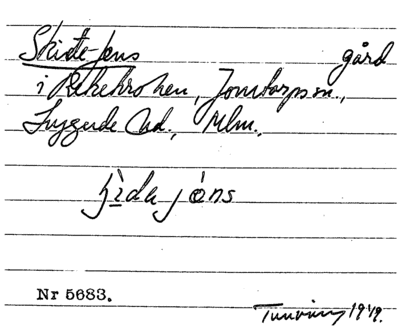 Skide-Jens gård
i Rekekroken, Jonstorps sn.,
Luggude hd., Mlm.
ʃìda jöns
Nr 5683.
1919.